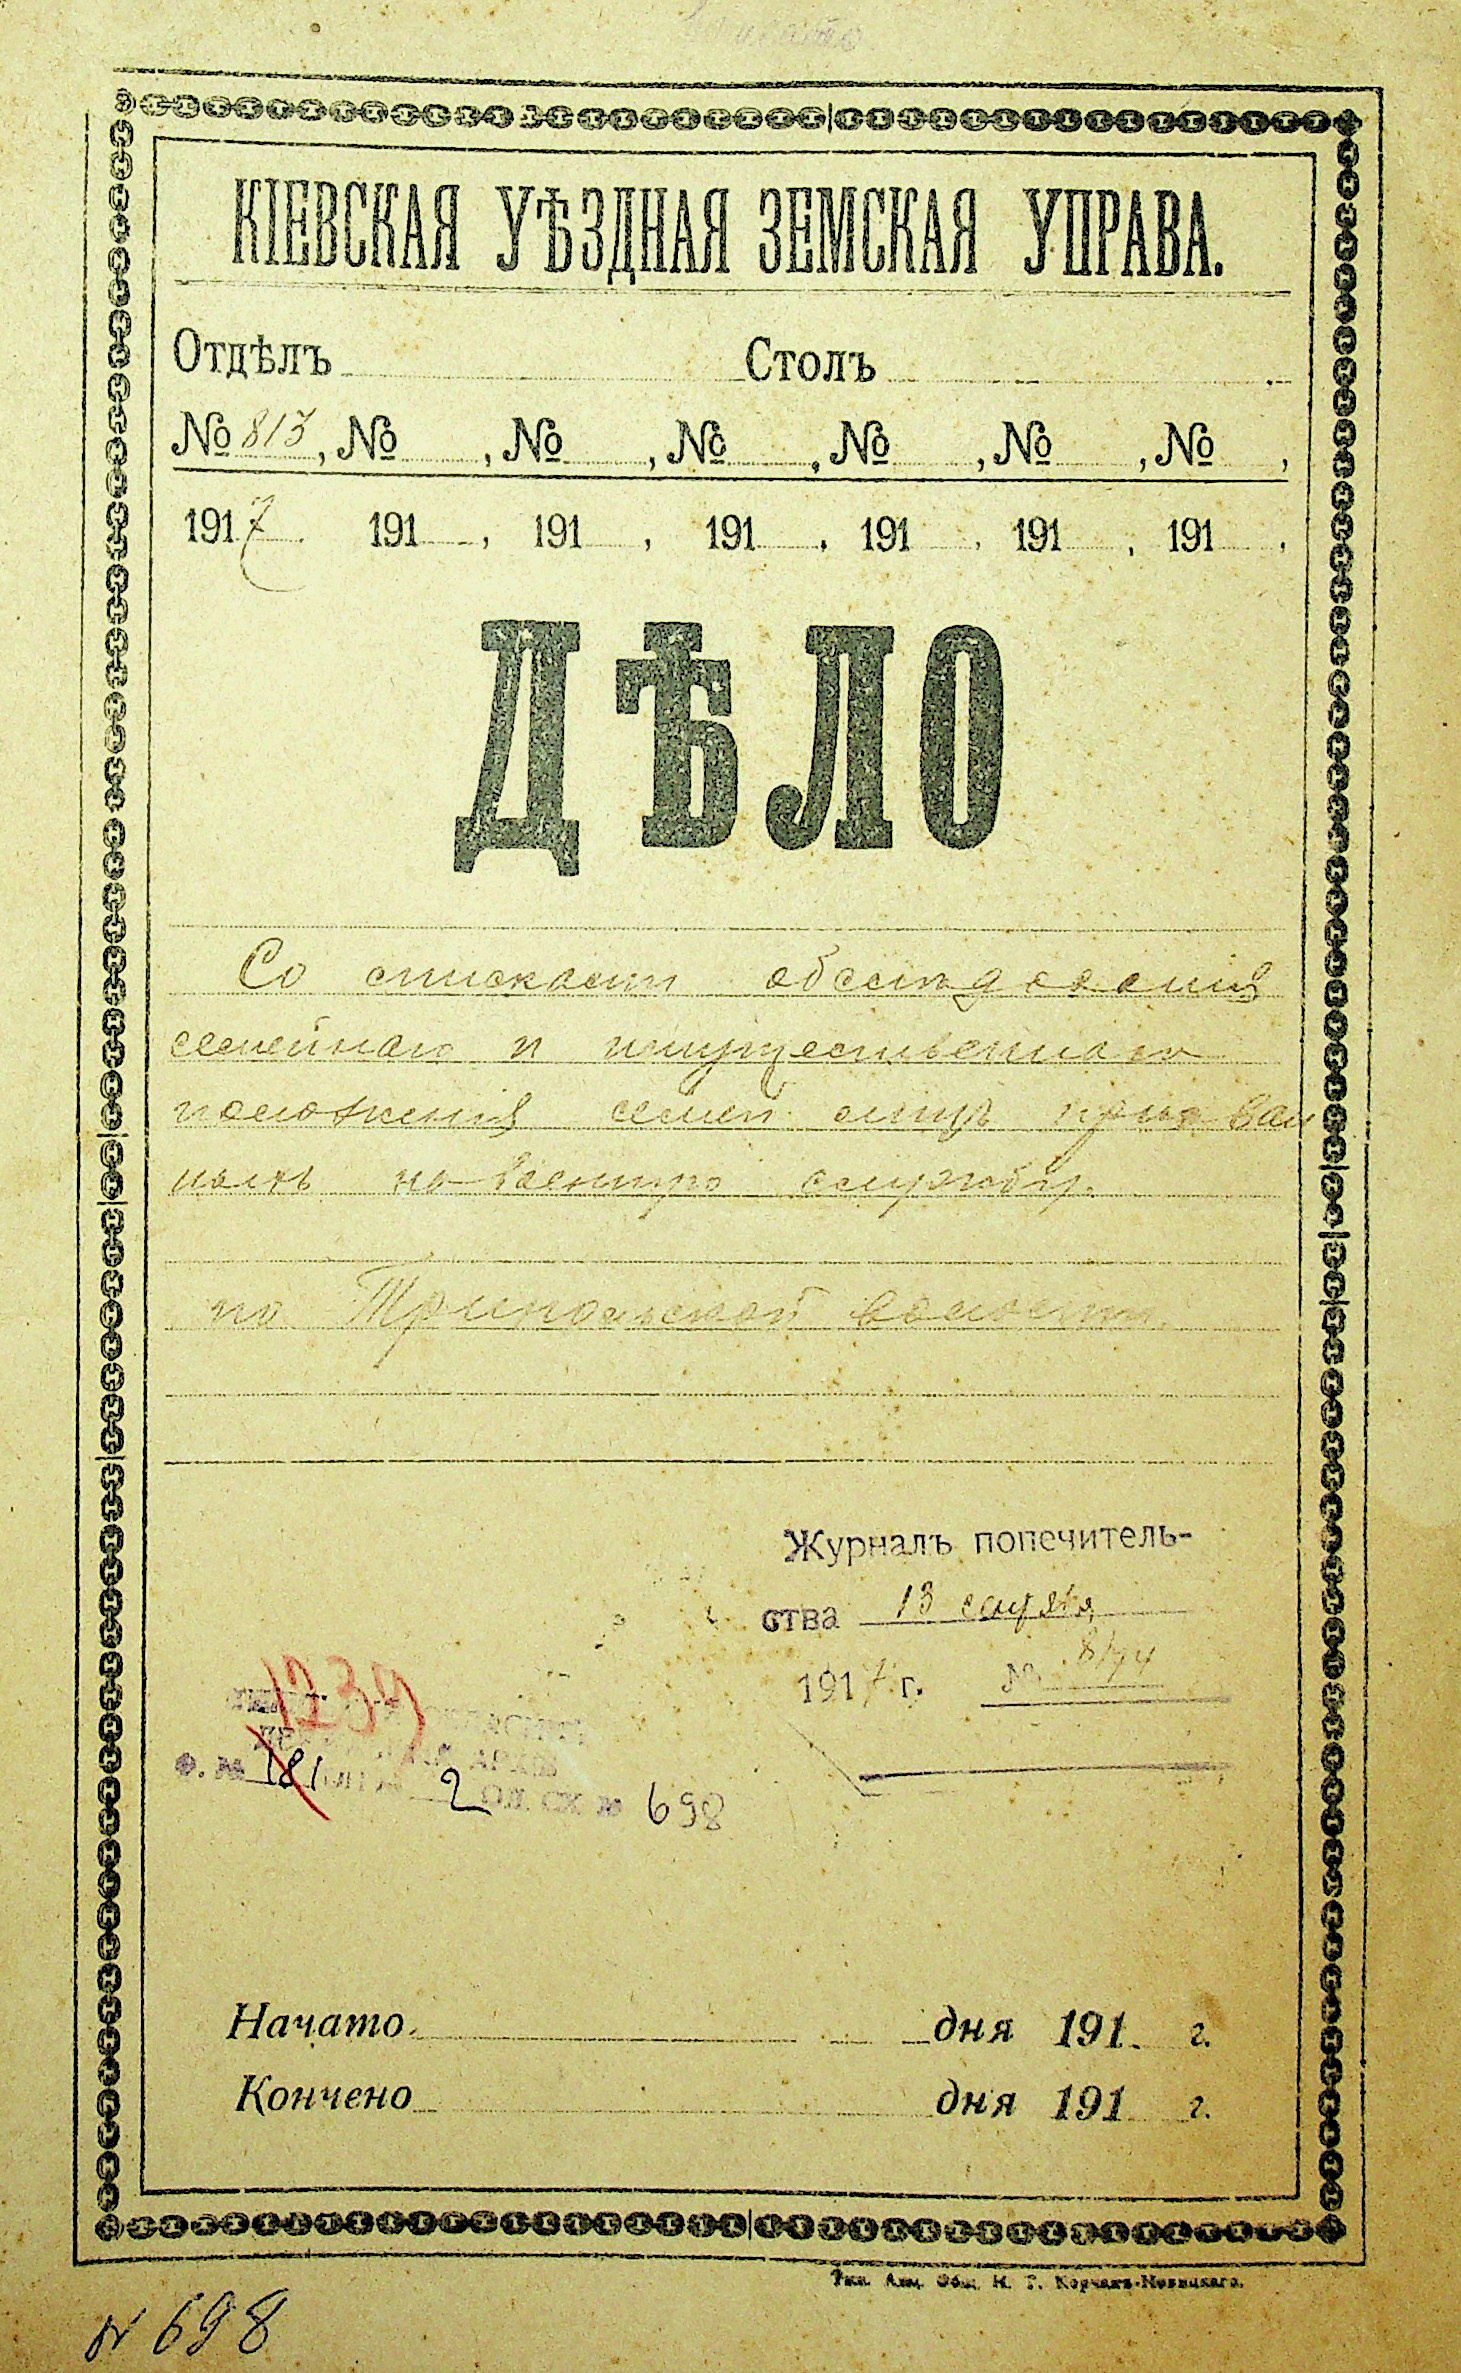 КІЕВСКАЯ УѢЗДНАЯ ЗЕМСКАЯ УПРАВА.
Отдѣлъ Столъ
№ 813, №, №, №, №, №, №,
1917. 191, 191, 191, 191, 191, 191,
ДѢЛО
Со списками обслѣдованія
семейнаго и имущественнаго
положенія семей лицъ призван
ныхъ на военную службу.
по Трипольской волости.
Журналъ попечитель-
ства 13 сентября
1917 г. №
1239
Ф. № 181 2 ОД. СХ № 698
Начато дня 191 г.
Кончено дня 191 г.
Тип. Акц. Общ. Н. Т. Корчакъ-Новицкаго.
N 698